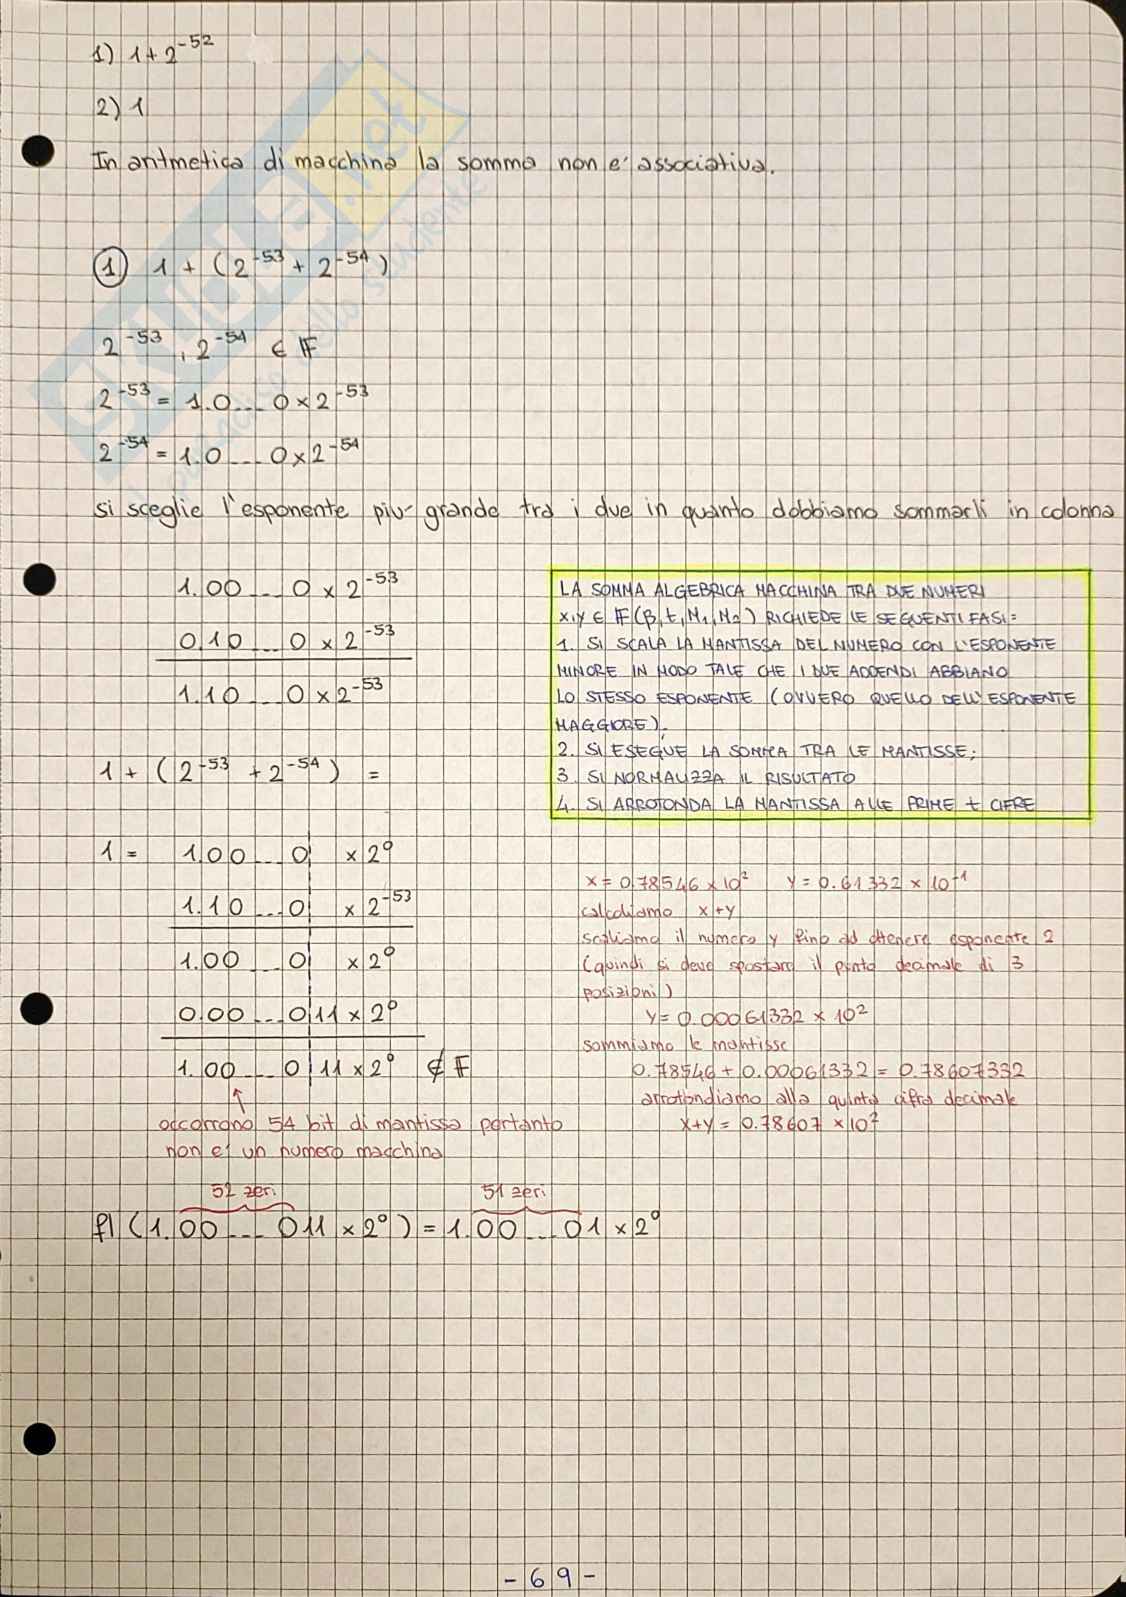 1) 1+2^-52
2) 1
In aritmetica di macchina la somma non e' associativa.
① 1 + (2^-53 + 2^-54)
2^-53 , 2^-54 ∈ F
2^-53 = 1.0...0 × 2^-53
2^-54 = 1.0...0 × 2^-54
si sceglie l'esponente piu' grande tra i due in quanto dobbiamo sommarli in colonna
1.00...0 × 2^-53
0.10...0 × 2^-53
1.10...0 × 2^-53
LA SOMMA ALGEBRICA MACCHINA TRA DUE NUMERI
x,y ∈ F(β,t,M1,M2) RICHIEDE LE SEQUENTI FASI:
1. SI SCALA LA MANTISSA DEL NUMERO CON L'ESPONENTE
MINORE IN MODO TALE CHE I DUE ADDENDI ABBIANO
LO STESSO ESPONENTE (OVVERO QUELLO DELL'ESPONENTE
MAGGIORE);
2. SI ESEGUE LA SOMMA TRA LE MANTISSE;
3. SI NORMALIZZA IL RISULTATO
4. SI ARROTONDA LA MANTISSA ALLE PRIME t CIFRE
1 + (2^-53 + 2^-54) =
1 = 1.00...0 × 2^0
1.10...0 × 2^-53
1.00...0 × 2^0
0.00...011 × 2^0
1.00...011 × 2^0 ∉ F
occorrono 54 bit di mantissa pertanto
non e' un numero macchina
x = 0.78546 × 10^2 y = 0.61332 × 10^-1
calcoliamo x+y
scaliamo il numero y fino ad ottenere esponente 2
(quindi si deve spostare il punto decimale di 3
posizioni)
y = 0.00061332 × 10^2
sommiamo le mantisse
0.78546 + 0.00061332 = 0.78607332
arrotondiamo alla quinta cifra decimale
x+y = 0.78607 × 10^2
52 zeri 51 zeri
fl (1.00...011 × 2^0) = 1.00...01 × 2^0
- 69 -
SKUOLA.net